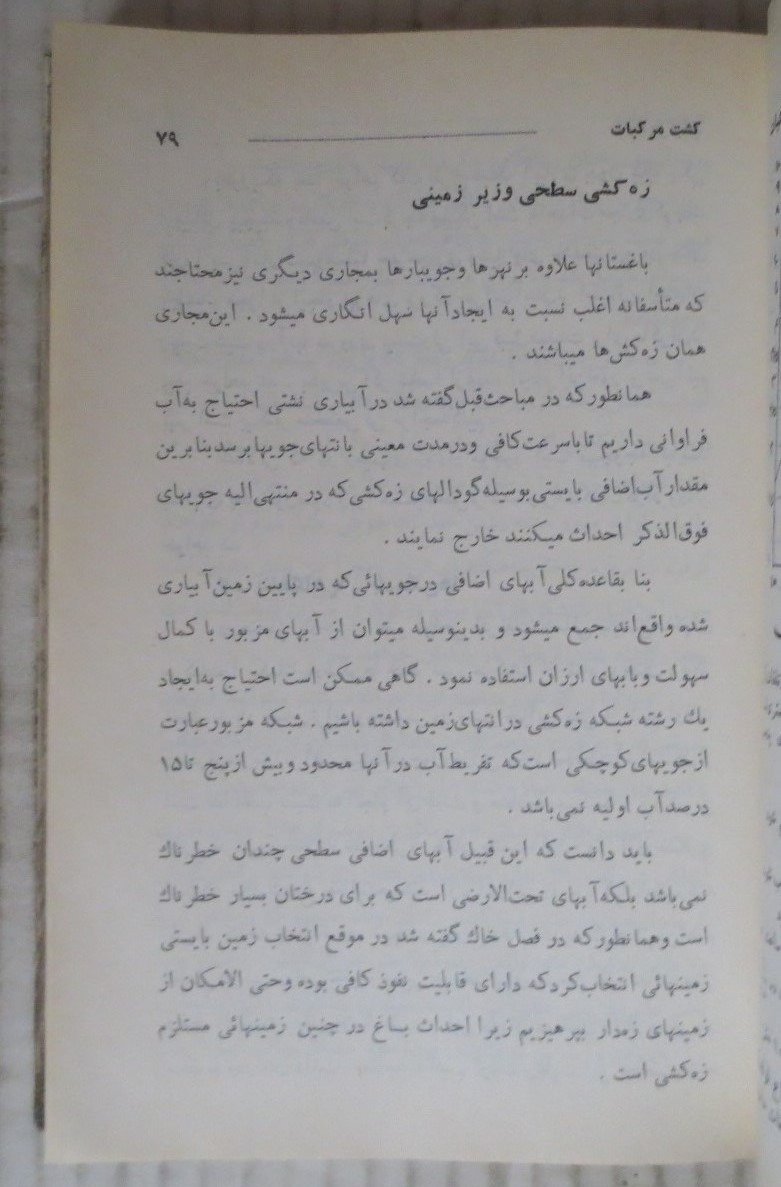 کشت مرکبات ۷۹
زه‌کشی سطحی وزیر زمینی
باغستانها علاوه بر نهرها وجویبارها بمجاری دیگری نیز محتاجند
که متأسفانه اغلب نسبت به ایجاد آنها سهل انگاری میشود . این مجاری
همان زه‌کش‌ها میباشند .
همانطور که در مباحث قبل گفته شد در آبیاری نشتی احتیاج به آب
فراوانی داریم تا باسرعت کافی ودرمدت معینی بانتهای جویها برسد بنابرین
مقدار آب اضافی بایستی بوسیله گودالهای زه‌کشی که در منتهی الیه جویهای
فوق‌الذکر احداث میکنند خارج نمایند .
بنا بقاعده کلی آبهای اضافی در جویهائی که در پایین زمین آبیاری
شده واقع‌اند جمع میشود و بدینوسیله میتوان از آبهای مزبور با کمال
سهولت وبابهای ارزان استفاده نمود . گاهی ممکن است احتیاج به ایجاد
یك رشته شبکه زه‌کشی در انتهای زمین داشته باشیم . شبکه مزبور عبارت
از جویهای کوچکی است که تفریط آب در آنها محدود وبیش از پنج تا ۱۵
درصد آب اولیه نمی‌باشد .
باید دانست که این قبیل آبهای اضافی سطحی چندان خطرناك
نمی‌باشد بلکه آبهای تحت‌الارضی است که برای درختان بسیار خطرناك
است وهمانطور که در فصل خاك گفته شد در موقع انتخاب زمین بایستی
زمینهائی انتخاب کرد که دارای قابلیت نفوذ کافی بوده وحتی الامکان از
زمینهای زه‌دار بپرهیزیم زیرا احداث باغ در چنین زمینهائی مستلزم
زه‌کشی است .